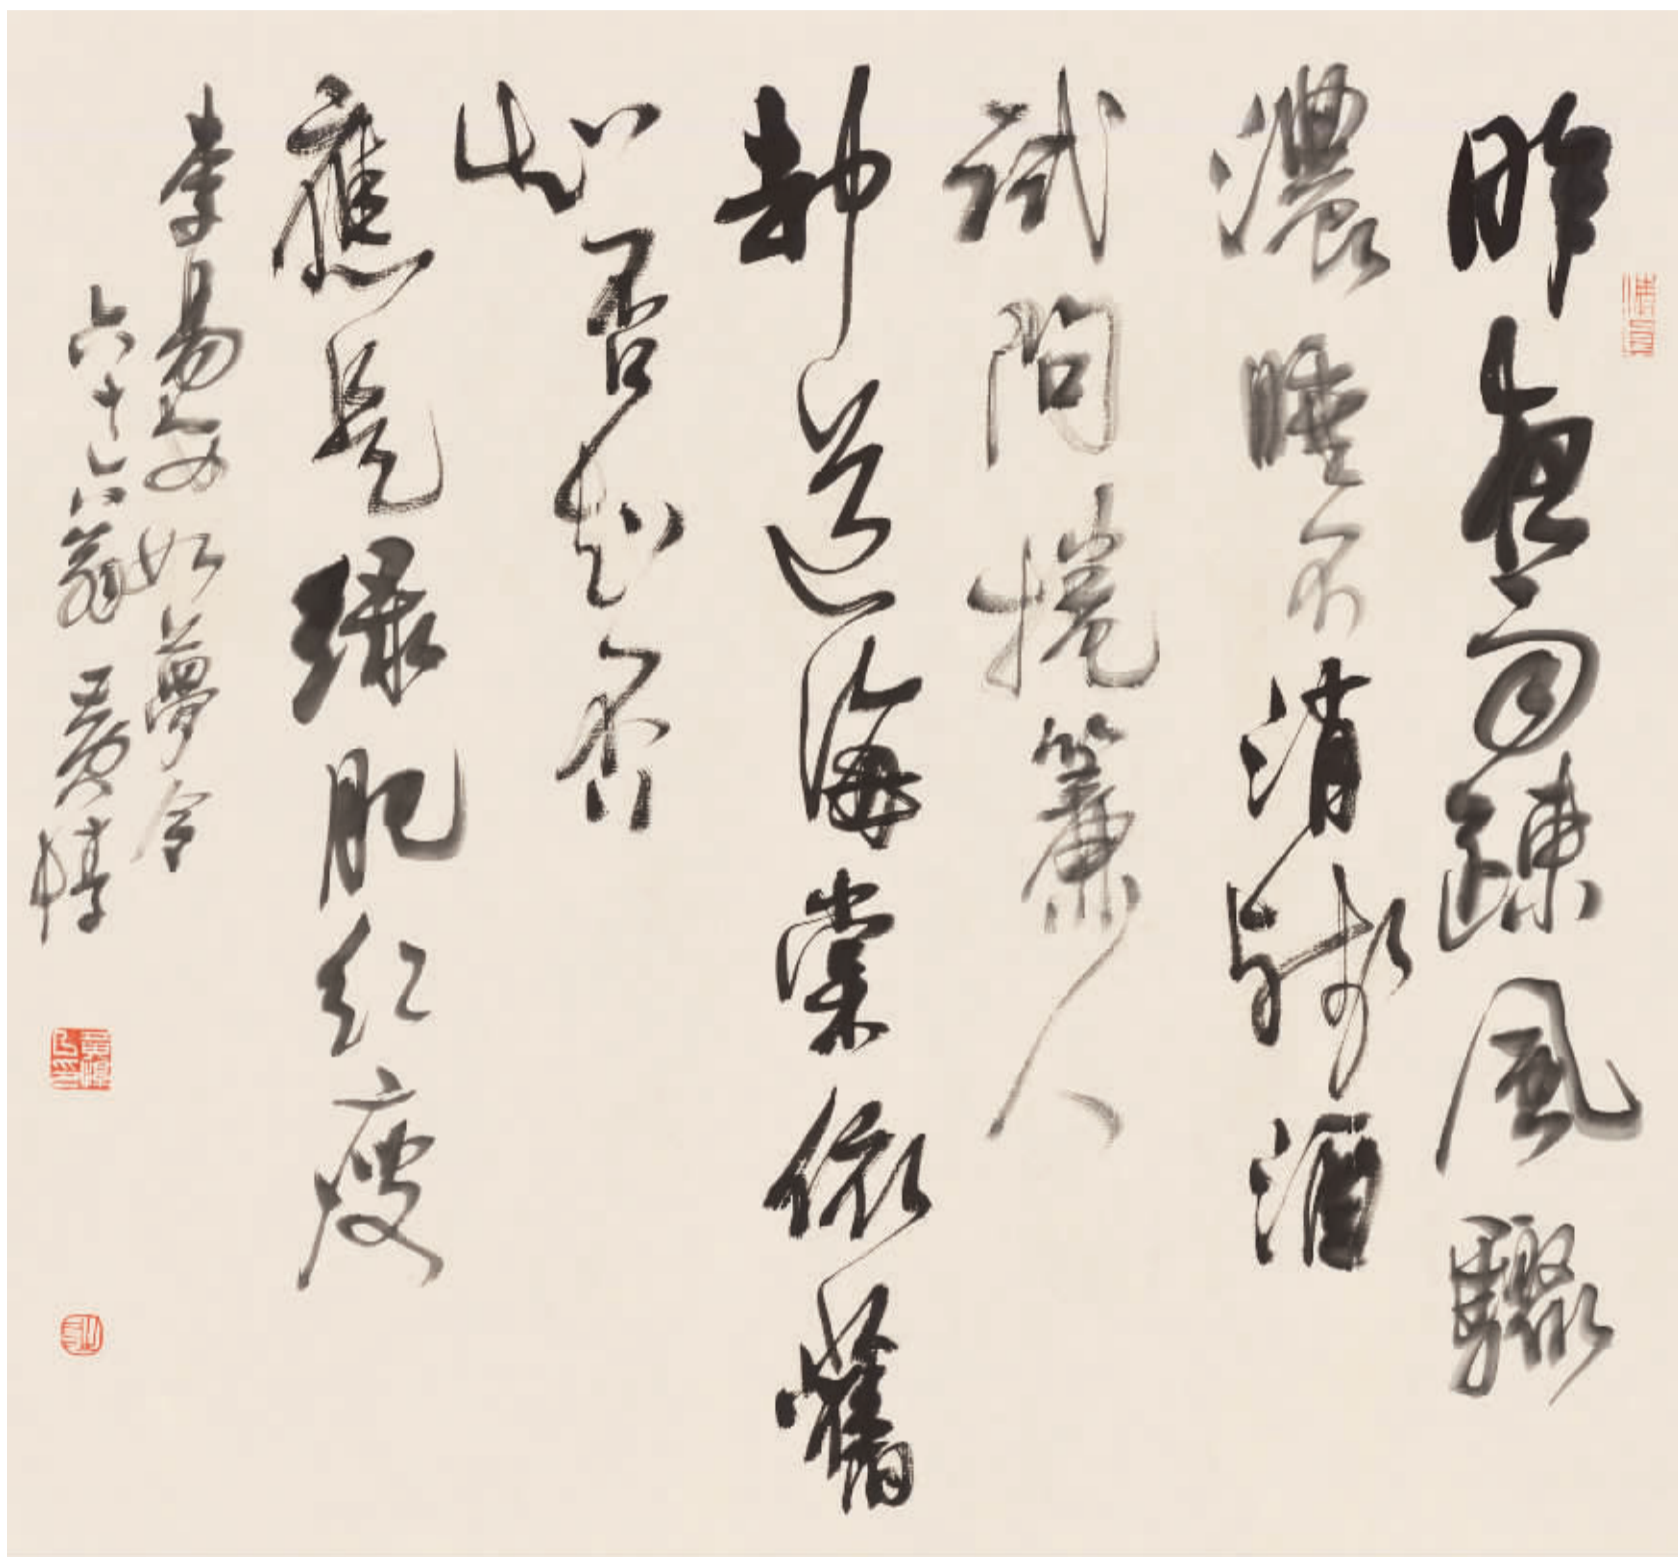 昨夜雨踈風驟
濃睡不消殘酒
試問捲簾人
却道海棠依舊
知否知否
應是綠肥紅瘦
李易安如夢令
六十六翁黃惇